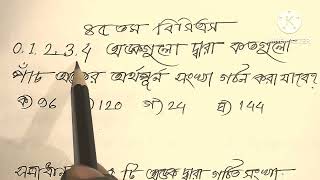 ৪৫ তম বিসিএস
0.1.2.3.4 অঙ্কগুলো দ্বারা কতগুলো
পাঁচ অঙ্কের অর্থপূর্ণ সংখ্যা গঠন করা যাবে?
ক) 96 120 গ) 24 ঘ) 144
টি অঙ্ক দ্বারা গঠিত সংখ্যা